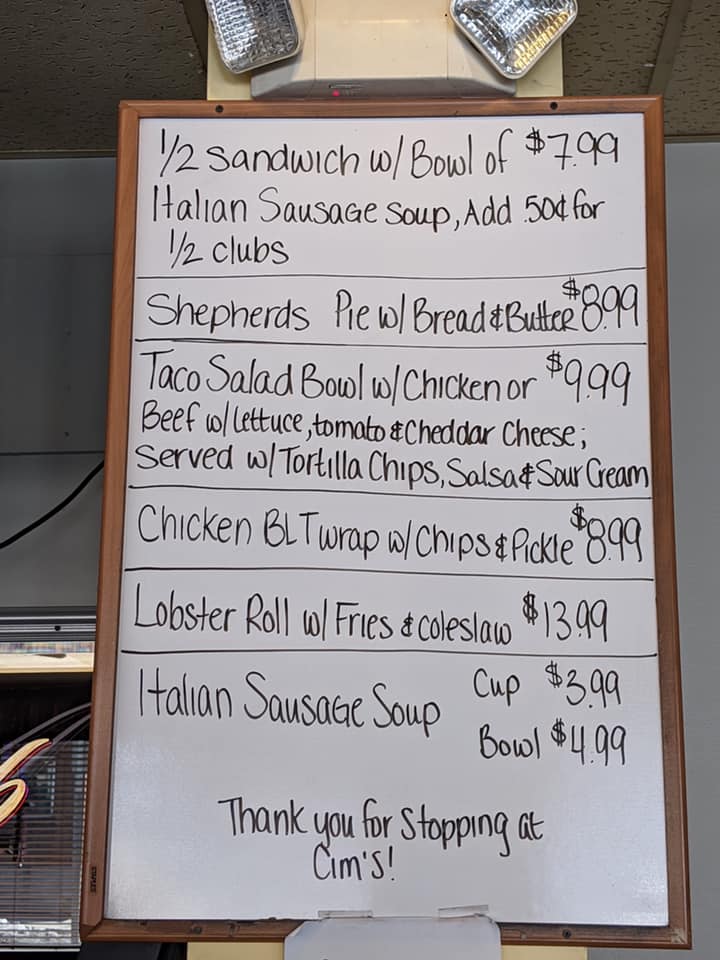 1/2 Sandwich w/ Bowl of $7.99
Italian Sausage Soup, Add .50¢ for
1/2 clubs
Shepherds Pie w/ Bread & Butter $8.99
Taco Salad Bowl w/ Chicken or $9.99
Beef w/ Lettuce, tomato & Cheddar Cheese;
Served w/ Tortilla Chips, Salsa & Sour Cream
Chicken BLT wrap w/ Chips & Pickle $8.99
Lobster Roll w/ Fries & coleslaw $13.99
Italian Sausage Soup Cup $3.99
Bowl $4.99
Thank you for Stopping at
Cim's!
STAPLES